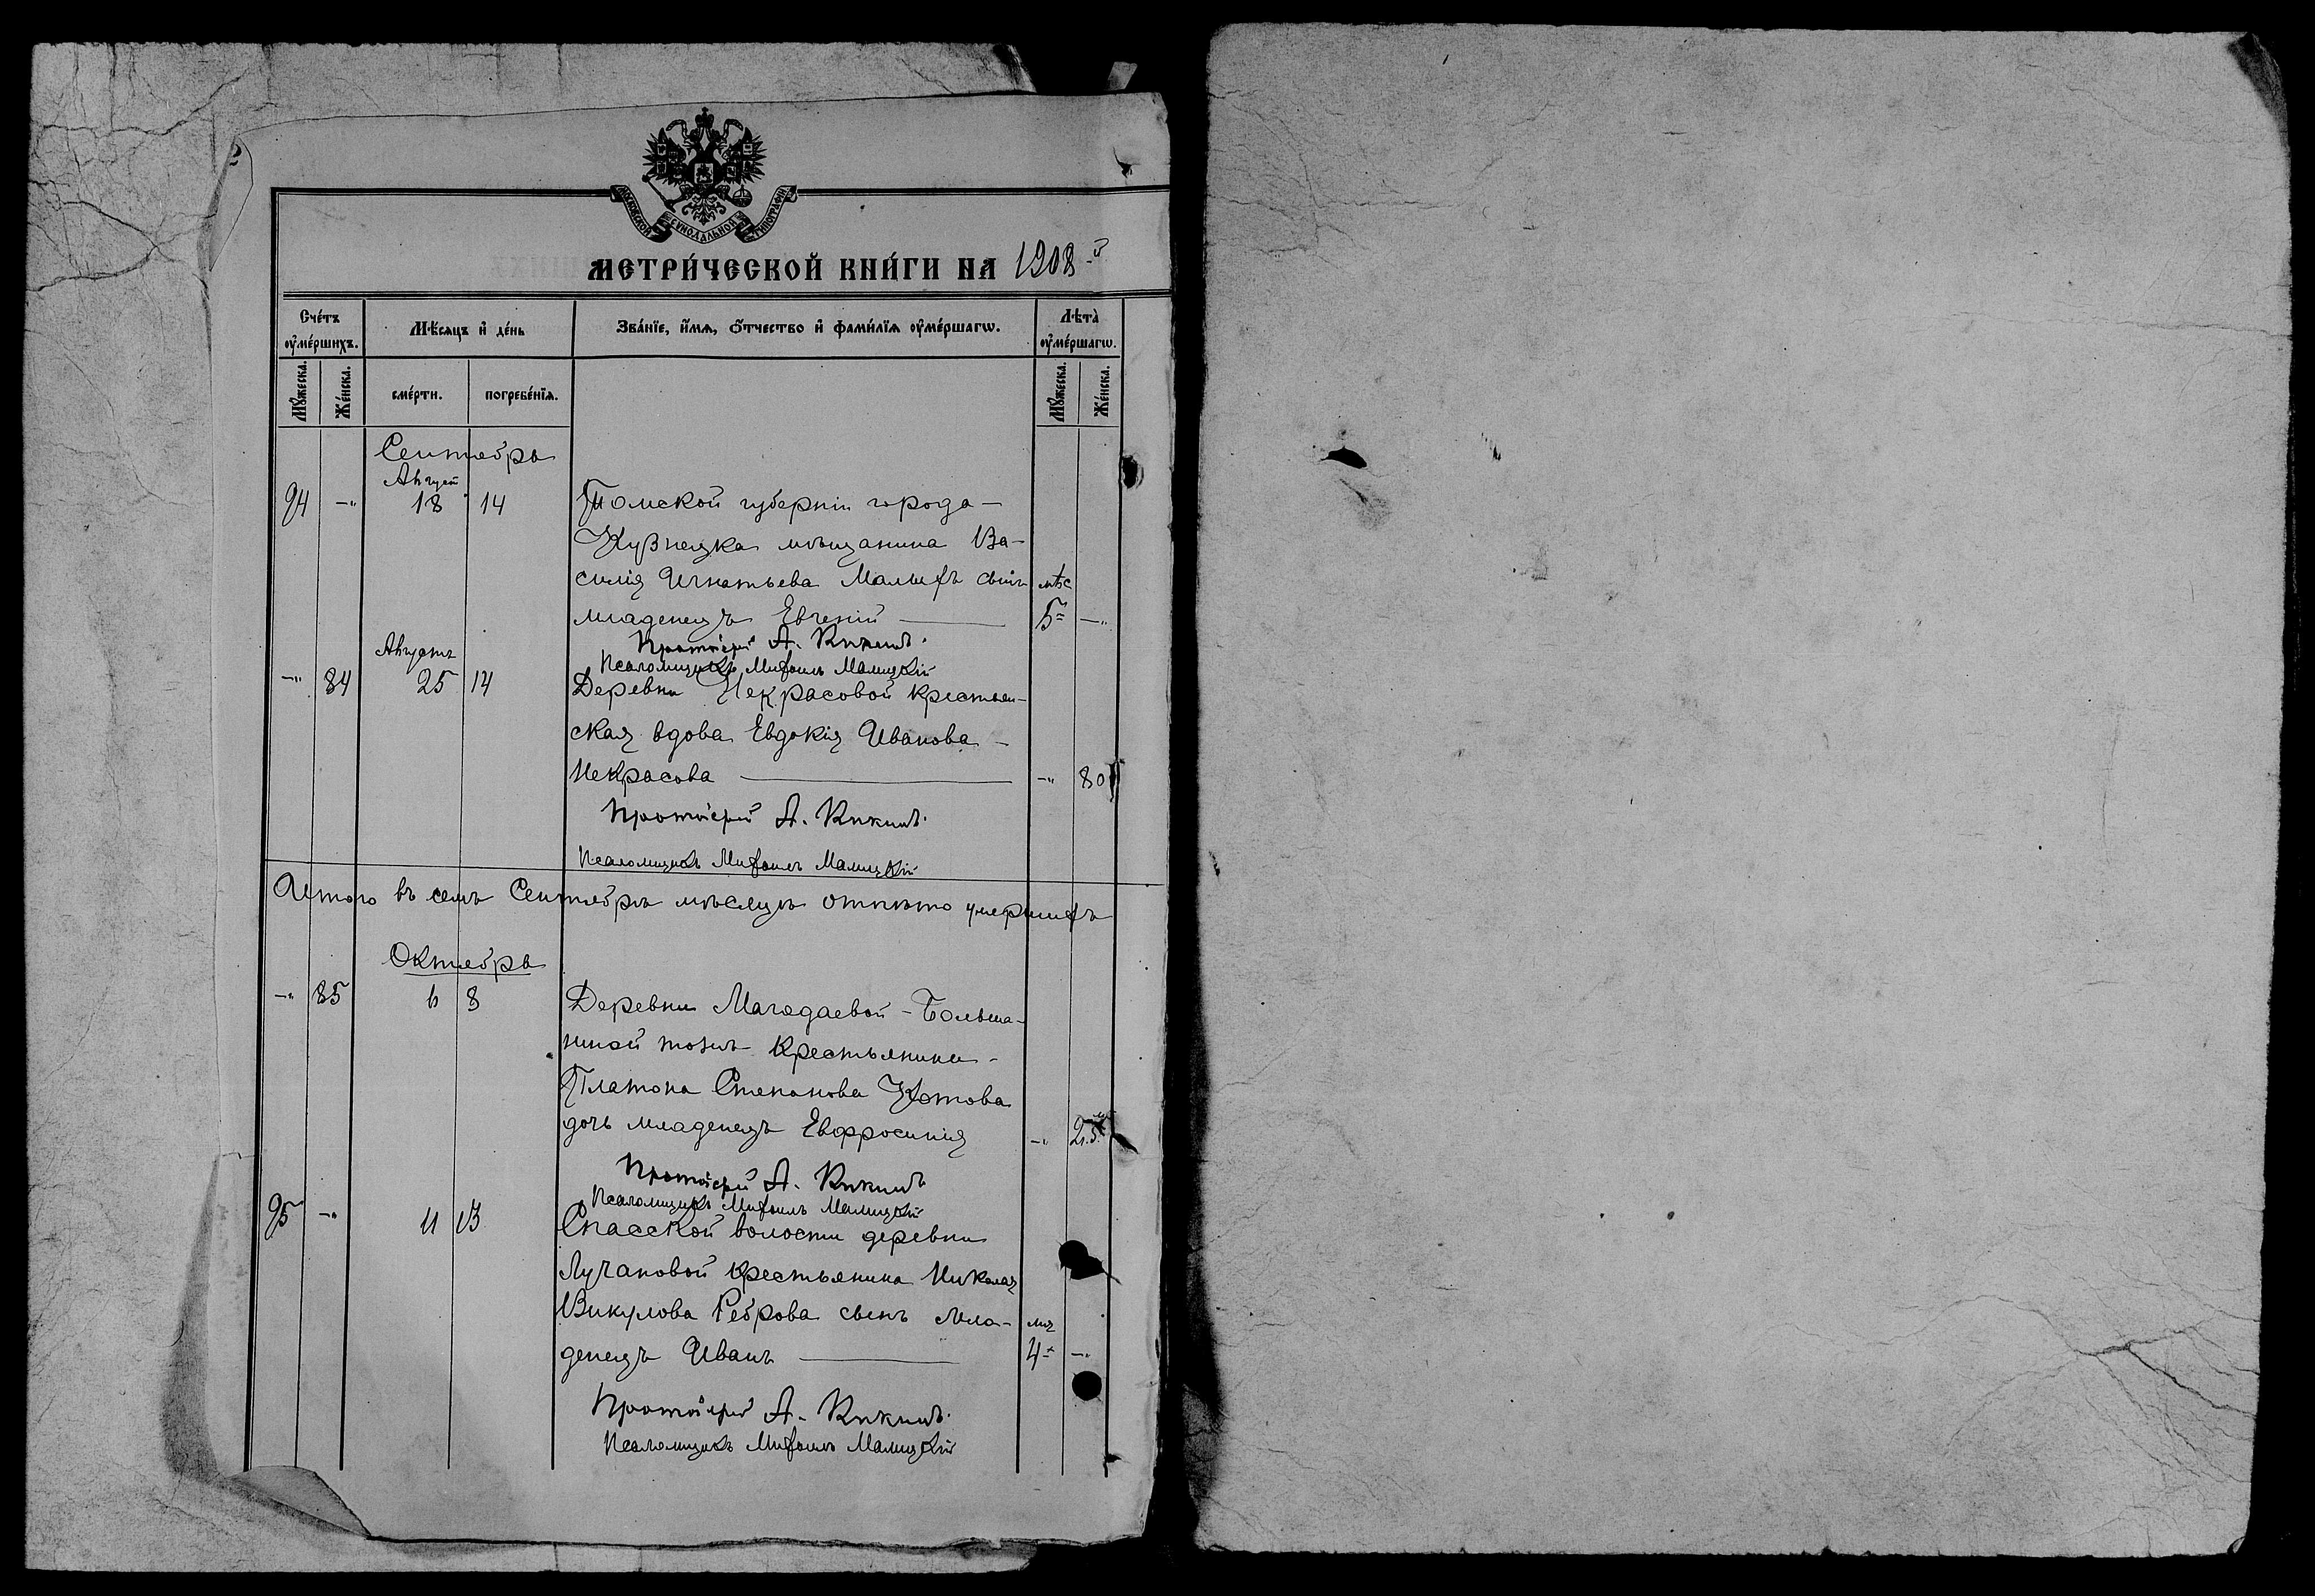 МОСКОВСКОЙ СѴНОДАЛЬНОЙ ТИПОГРАФІИ
МЕТРИ́ЧЕСКОЙ КНИ́ГИ НА 1908-й
Сче́тъ оу҆ме́ршихъ.
Мѣ́сѧцъ и҆ де́нь
Зва́нїе, и҆́мѧ, ѻ҆́тчество и҆ фами́лїѧ оу҆ме́ршагѡ.
Лѣта̀ оу҆ме́ршагѡ.
Мꙋ́жеска.
Же́нска.
сме́рти.
погребе́нїѧ.
Мꙋ́жеска.
Же́нска.
Сентябрь
Август
94 —" 18 14 Томской губерніи города —
Кузнецка мѣщанина Ва-
силія Игнатьева Малыхъ сынъ мѣс
младенецъ Евгеній 5 —"
Протоіерей А.
Августъ
Псаломщикъ Михаилъ Малицкій
—" 84 25 14 Деревни Некрасовой крестьян-
ская вдова Евдокія Иванова —
Некрасова —" 80
Протоіерей А.
Псаломщикъ Михаилъ Малицкій
Итого въ семъ Сентябрѣ мѣсяцѣ отпѣто умершихъ
Октябрь
—" 85 6 8 Деревни Магадаевой - Больша-
крестьянина -
Платона Степанова Котова
дочь младенецъ Евфросинія —"
Протоіерей А.
Псаломщикъ Михаилъ Малицкій
95 —" 11 13 Спасской волости деревни
Лучановой крестьянина Николая
Викулова Реброва сынъ мла-
денецъ Иванъ 4 —"
Протоіерей А.
Псаломщикъ Михаилъ Малицкій